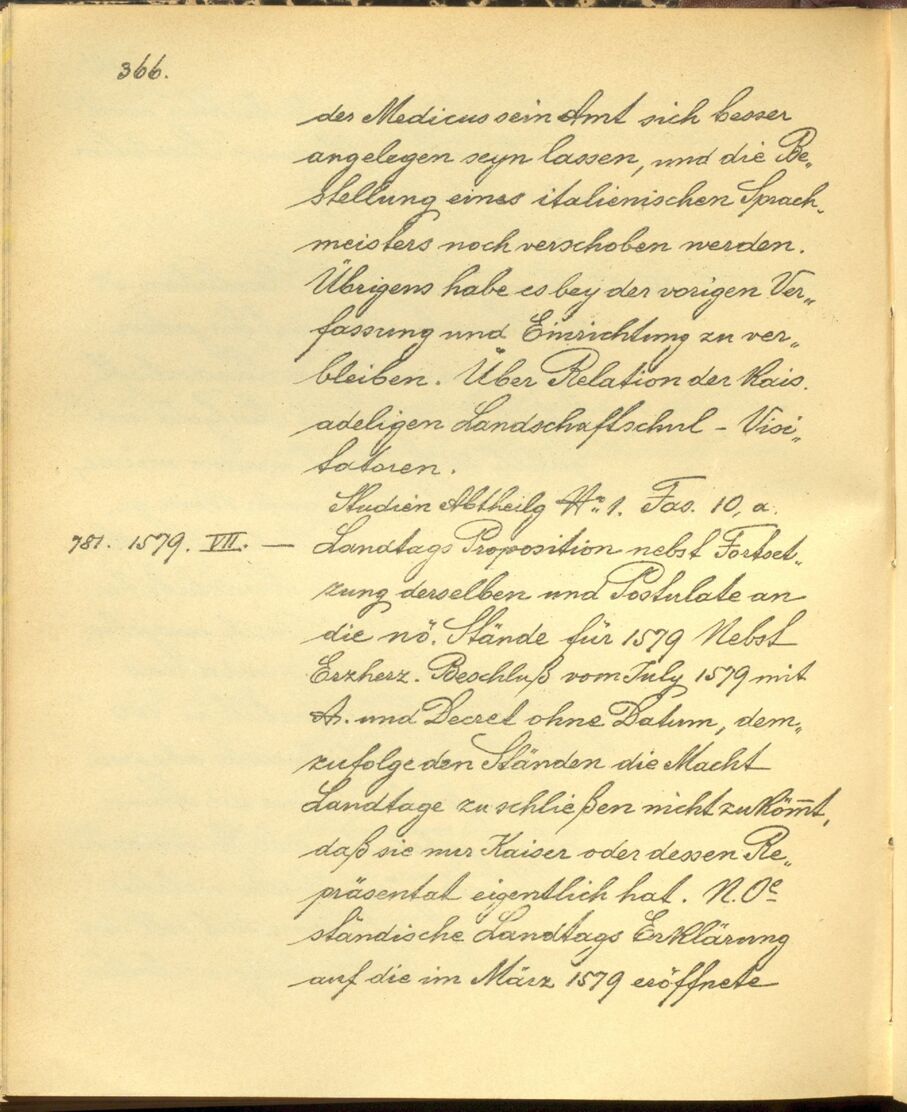 366.
der Medicus sein Amt sich besser
angelegen seyn lassen, und die Be„
stellung eines italienischen Sprach„
meisters noch verschoben werden.
Übrigens habe es bey der vorigen Ver„
fassung und Einrichtung zu ver„
bleiben. Über Relation der Kais.
adeligen Landschaftschul - Visi„
tatoren.
Studien Abtheilg No. 1. Fas. 10, a.
781. 1579. VII. — Landtags Proposition nebst Fortset„
zung derselben und Postulate an
die nö. Stände für 1579 Nebst
Erzherz. Beschluß vom July 1579 mit
A. und Decret ohne Datum, dem„
zufolge den Ständen die Macht
Landtage zu schließen nicht zukom̅t,
daß sie nur Kaiser oder dessen Re„
präsentat eigentlich hat. N. Oe
ständische Landtags Erklärung
auf die im März 1579 eröffnete